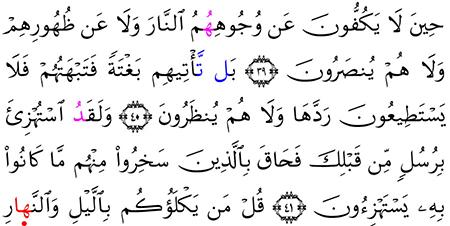 حِينَ لَا يَكُفُّونَ عَن وُجُوهِهُمُ ٱلنَّارَ وَلَا عَن ظُهُورِهِمْ
وَلَا هُمْ يُنصَرُونَ ۝٣٩ بَل تَّأْتِيهِم بَغْتَةً فَتَبْهَتُهُمْ فَلَا
يَسْتَطِيعُونَ رَدَّهَا وَلَا هُمْ يُنظَرُونَ ۝٤٠ وَلَقَدُ ٱسْتُهْزِئَ
بِرُسُلٍ مِّن قَبْلِكَ فَحَاقَ بِٱلَّذِينَ سَخِرُوا۟ مِنْهُم مَّا كَانُوا۟
بِهِۦ يَسْتَهْزِءُونَ ۝٤١ قُلْ مَن يَكْلَؤُكُم بِٱلَّيْلِ وَٱلنَّهارِ